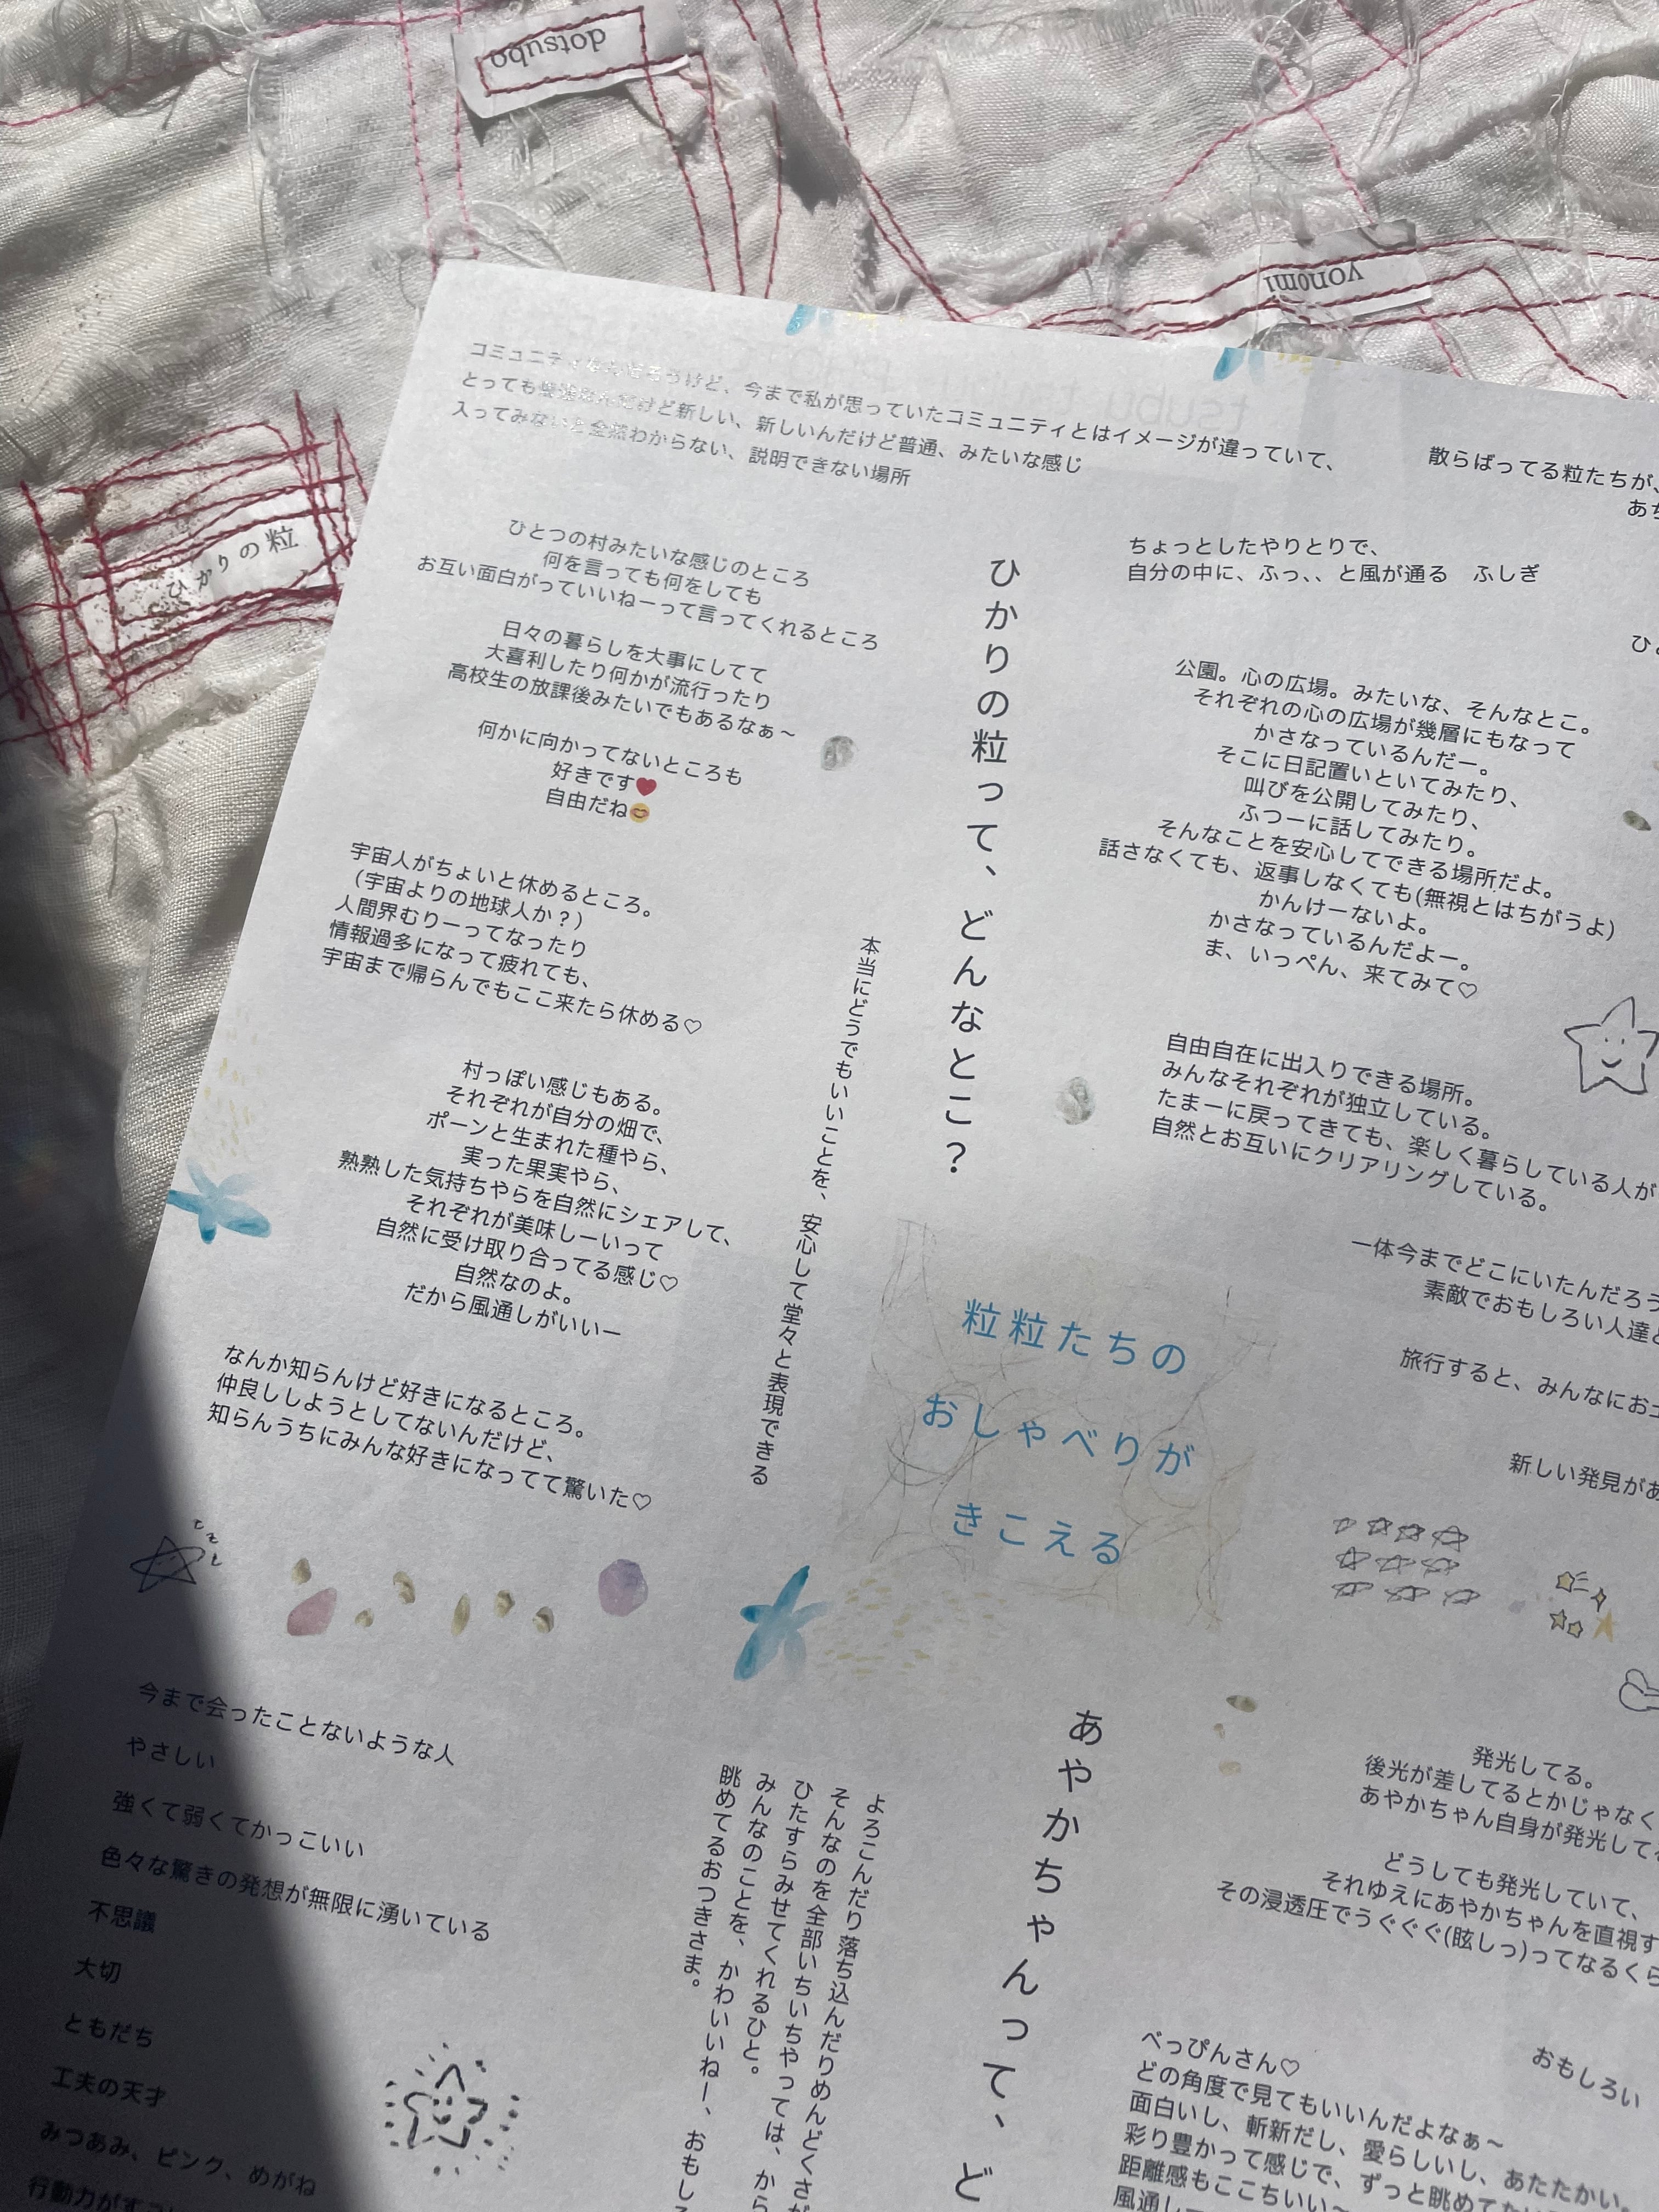 dotsubo
yonomi
ひかりの粒
コミュニティなんだろうけど、今まで私が思っていたコミュニティとはイメージが違っていて、
とっても
だけど新しい、新しいんだけど普通、みたいな感じ
入ってみないと全然わからない、説明できない場所
散らばってる粒たちが、
ひとつの村みたいな感じのところ
何を言っても何をしても
お互い面白がっていいねーって言ってくれるところ
日々の暮らしを大事にしてて
大喜利したり何かが流行ったり
高校生の放課後みたいでもあるなぁ〜
何かに向かってないところも
好きです❤️
自由だね😊
宇宙人がちょいと休めるところ。
(宇宙よりの地球人か？)
人間界むりーってなったり
情報過多になって疲れても、
宇宙まで帰らんでもここ来たら休める♡
村っぽい感じもある。
それぞれが自分の畑で、
ポーンと生まれた種やら、
実った果実やら、
熟熟した気持ちやらを自然にシェアして、
それぞれが美味しーいって
自然に受け取り合ってる感じ♡
自然なのよ。
だから風通しがいいー
なんか知らんけど好きになるところ。
仲良ししようとしてないんだけど、
知らんうちにみんな好きになってて驚いた♡
ひかりの粒って、どんなとこ？
本当にどうでもいいことを、安心して堂々と表現できる
ちょっとしたやりとりで、
自分の中に、ふっ、、と風が通る　ふしぎ
公園。心の広場。みたいな、そんなとこ。
それぞれの心の広場が幾層にもなって
かさなっているんだー。
そこに日記置いといてみたり、
叫びを公開してみたり、
ふつーに話してみたり。
そんなことを安心してできる場所だよ。
話さなくても、返事しなくても(無視とはちがうよ)
かんけーないよ。
かさなっているんだよー。
ま、いっぺん、来てみて♡
自由自在に出入りできる場所。
みんなそれぞれが独立している。
たまーに戻ってきても、楽しく暮らしている人が
自然とお互いにクリアリングしている。
一体今までどこにいたんだろう
素敵でおもしろい人達と
旅行すると、みんなにお土
新しい発見があ
粒粒たちの
おしゃべりが
きこえる
今まで会ったことないような人
やさしい
強くて弱くてかっこいい
色々な驚きの発想が無限に湧いている
不思議
大切
ともだち
工夫の天才
みつあみ、ピンク、めがね
行動力がすご
あやかちゃんって、ど
よろこんだり落ち込んだりめんどくさが
そんなのを全部いちいちやっては、から
ひたすらみせてくれるひと。
みんなのことを、かわいいねー、おもしろ
眺めてるおつきさま。
発光してる。
後光が差してるとかじゃなく
あやかちゃん自身が発光して
どうしても発光していて、
それゆえにあやかちゃんを直視す
その浸透圧でうぐぐぐ(眩しっ)ってなるくら
おもしろい
べっぴんさん♡
どの角度で見てもいいんだよなぁ〜
面白いし、斬新だし、愛らしいし、あたたかい。
彩り豊かって感じで、ずっと眺めてた
距離感もここちいい〜
風通し